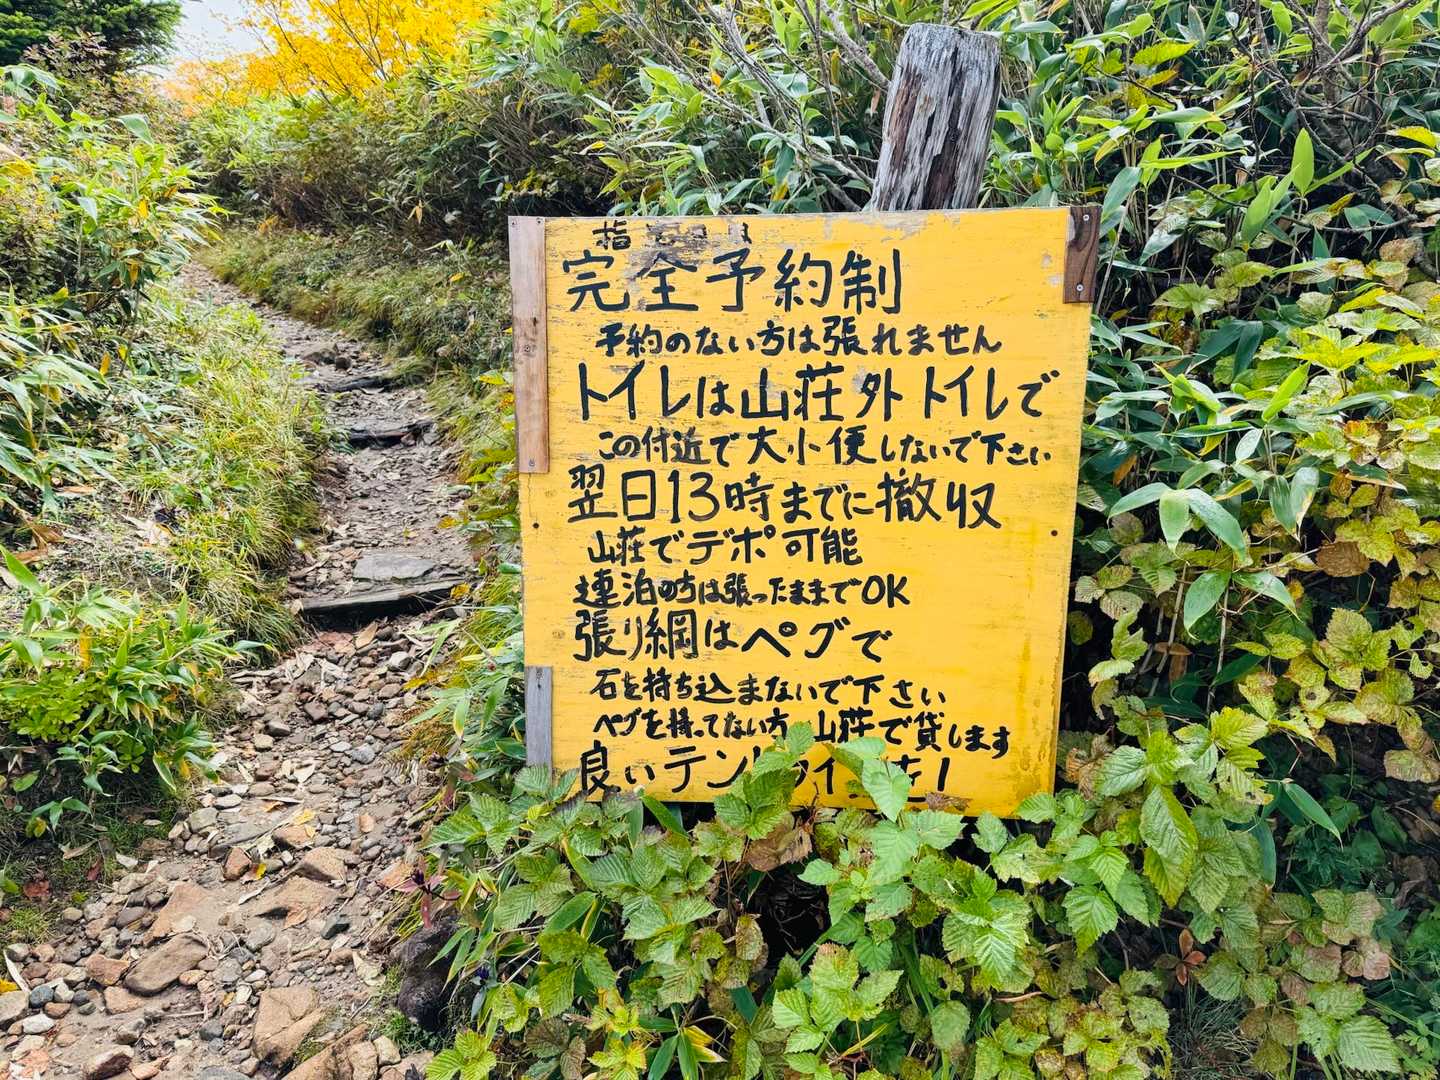 指
完全予約制
予約のない方は張れません
トイレは山荘外トイレで
この付近で大小便しないで下さい
翌日13時までに撤収
山荘でデポ可能
連泊の方は張ったままでOK
張り綱はペグで
石を持ち込まないで下さい
ペグを持ってない方 山荘で貸します
良いテン